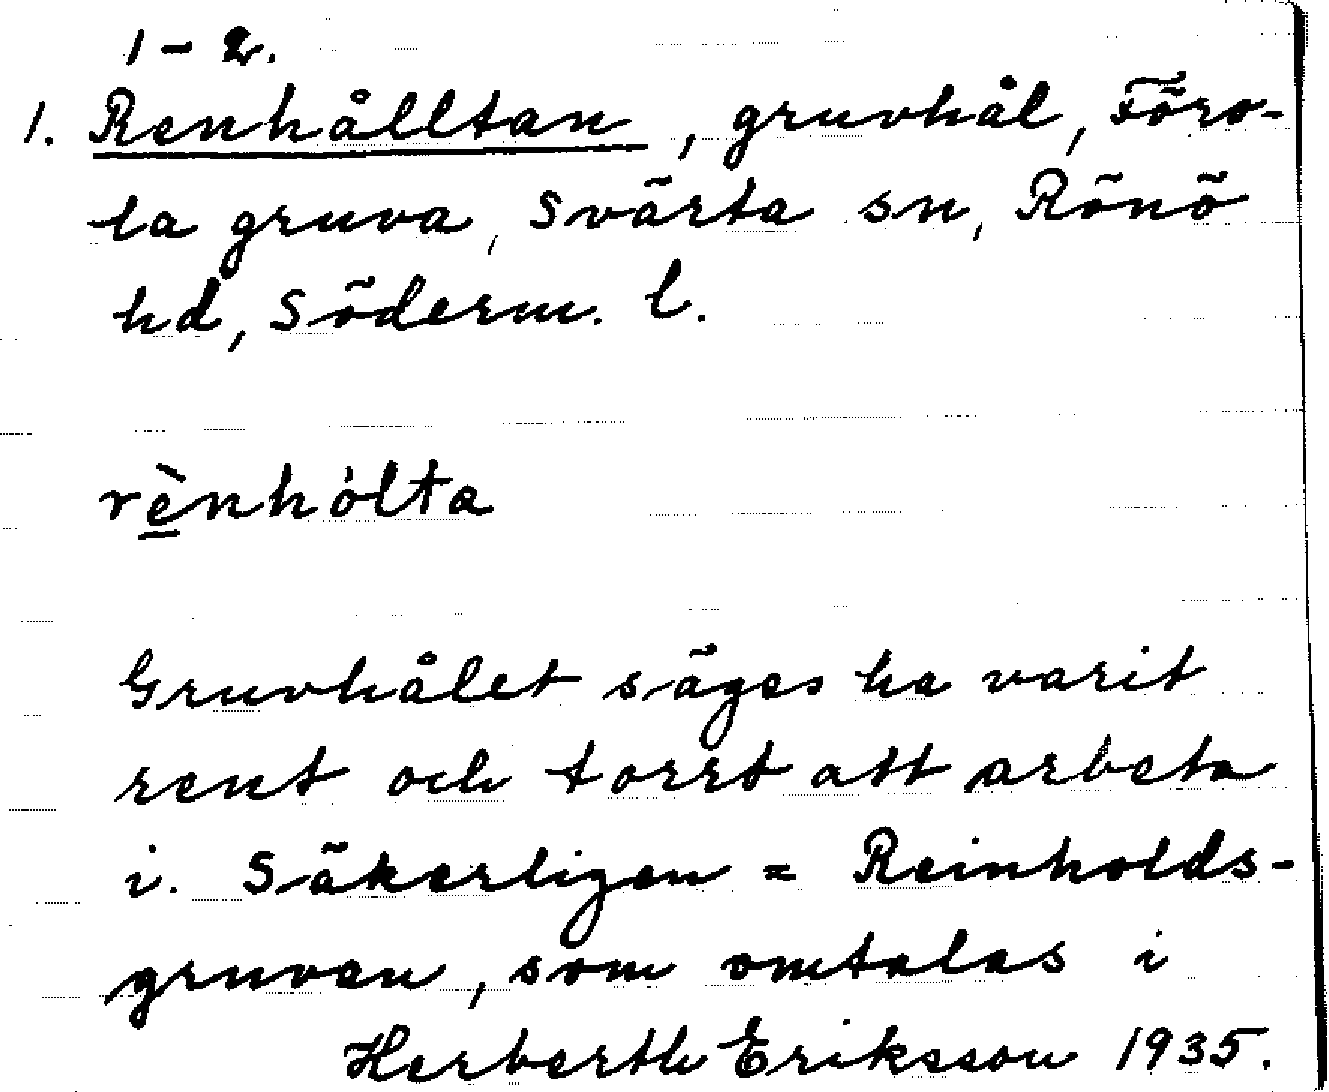 1-2.
1. Renhålltan, gruvhål, Föro-
la gruva, Svärta sn, Rönö
hd, Söderm. l.
rènhólta
Gruvhålet säges ha varit
rent och torrt att arbeta
i. Säkerligen = Reinholds-
gruvan, som omtalas i
Herberth Eriksson 1935.